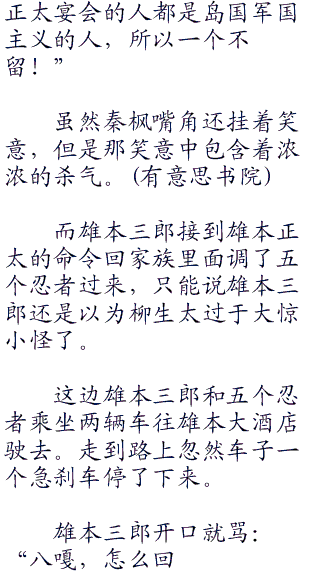 正太宴会的人都是岛国军国
主义的人，所以一个不
留！”
虽然秦枫嘴角还挂着笑
意，但是那笑意中包含着浓
浓的杀气。(有意思书院)
而雄本三郎接到雄本正
太的命令回家族里面调了五
个忍者过来，只能说雄本三
郎还是以为柳生太过于大惊
小怪了。
这边雄本三郎和五个忍
者乘坐两辆车往雄本大酒店
驶去。走到路上忽然车子一
个急刹车停了下来。
雄本三郎开口就骂：
“八嘎，怎么回